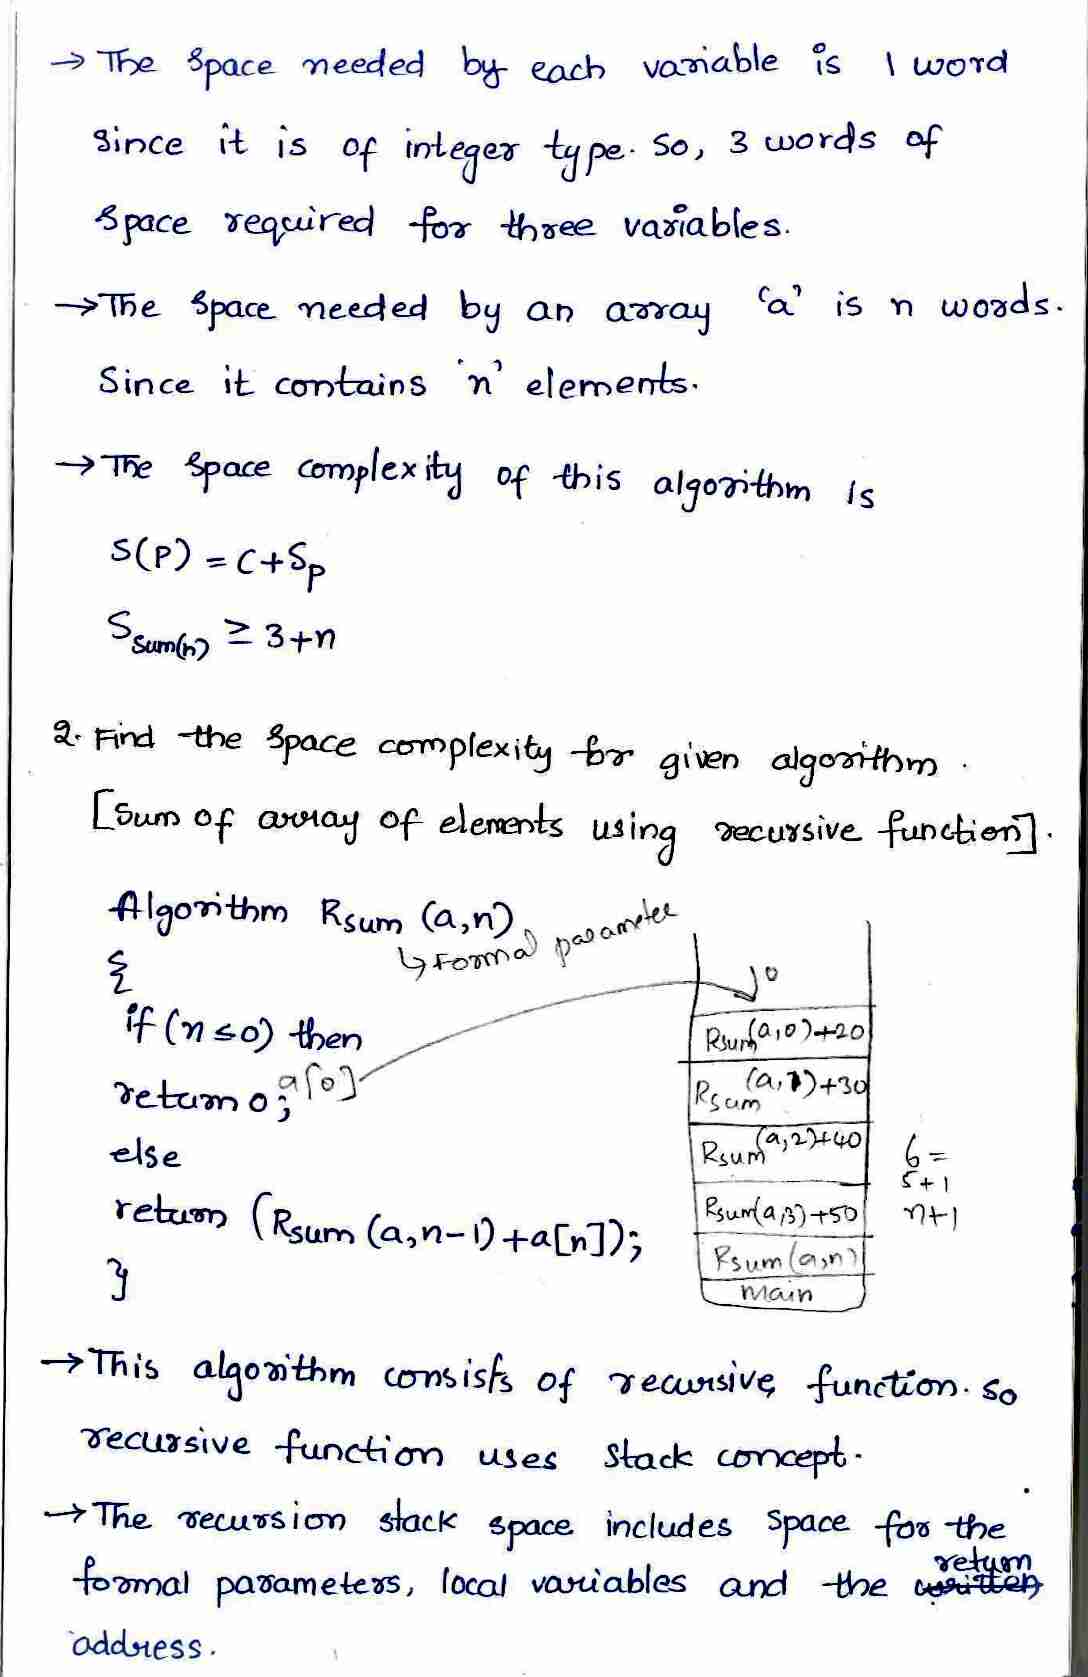 → The space needed by each variable is 1 word
since it is of integer type. So, 3 words of
space required for three variables.
→ The space needed by an array 'a' is n words.
Since it contains 'n' elements.
→ The space complexity of this algorithm is
S(P) = C+Sp
Ssum(n) ≥ 3+n
2. Find the space complexity for given algorithm.
[Sum of array of elements using recursive function].
Algorithm Rsum (a,n)
↳ Formal parameter
{
if (n≤0) then
return 0; a[0]
else
return (Rsum (a,n-1)+a[n]);
}
0
Rsum(a,0)+20
Rsum(a,1)+30
Rsum(a,2)+40
Rsum(a,3)+50
Rsum(a,n)
main
6 =
5+1
n+1
→ This algorithm consists of recursive function. So
recursive function uses stack concept.
→ The recursion stack space includes space for the
formal parameters, local variables and the written return
address.